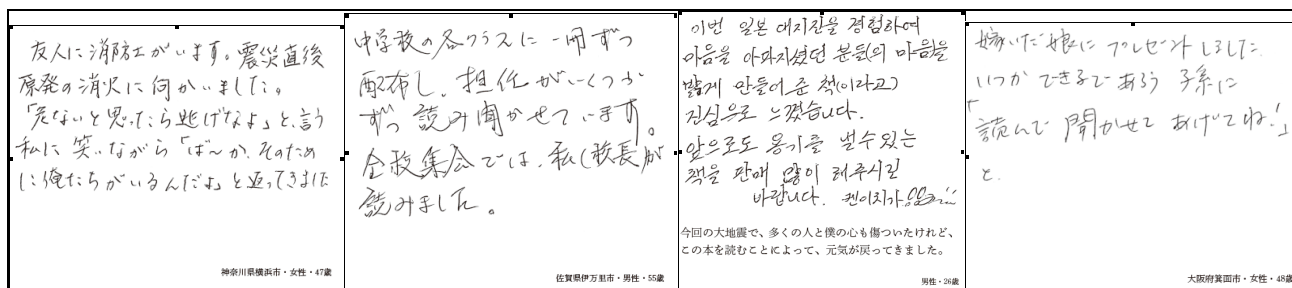 友人に消防士がいます。震災直後
原発の消火に向かいました。
「危ないと思ったら逃げなよ」と、言う
私に笑いながら「ばーか、そのため
に俺たちがいるんだよ」と返ってきました
神奈川県横浜市・女性・47歳
中学校の各クラスに一冊ずつ
配布し、担任がいくつか
ずつ読み聞かせています。
全校集会では、私(校長)が
読みました。
佐賀県伊万里市・男性・55歳
이번 일본 대지진을 경험하여
마음을 아파지셨던 분들(의 마음)을
밝게 만들어 준 책(이라고)
진심으로 느꼈습니다.
앞으로도 용기를 낼수있는
책을 판매 많이 해주시길
바랍니다. 켄이치가
今回の大地震で、多くの人と僕の心も傷ついたけれど、
この本を読むことによって、元気が戻ってきました。
男性・26歳
嫁いだ娘にプレゼントしました
いつかできるであろう子系に
「読んで聞かせてあげてね!」
と.
大阪府箕面市・女性・48歳